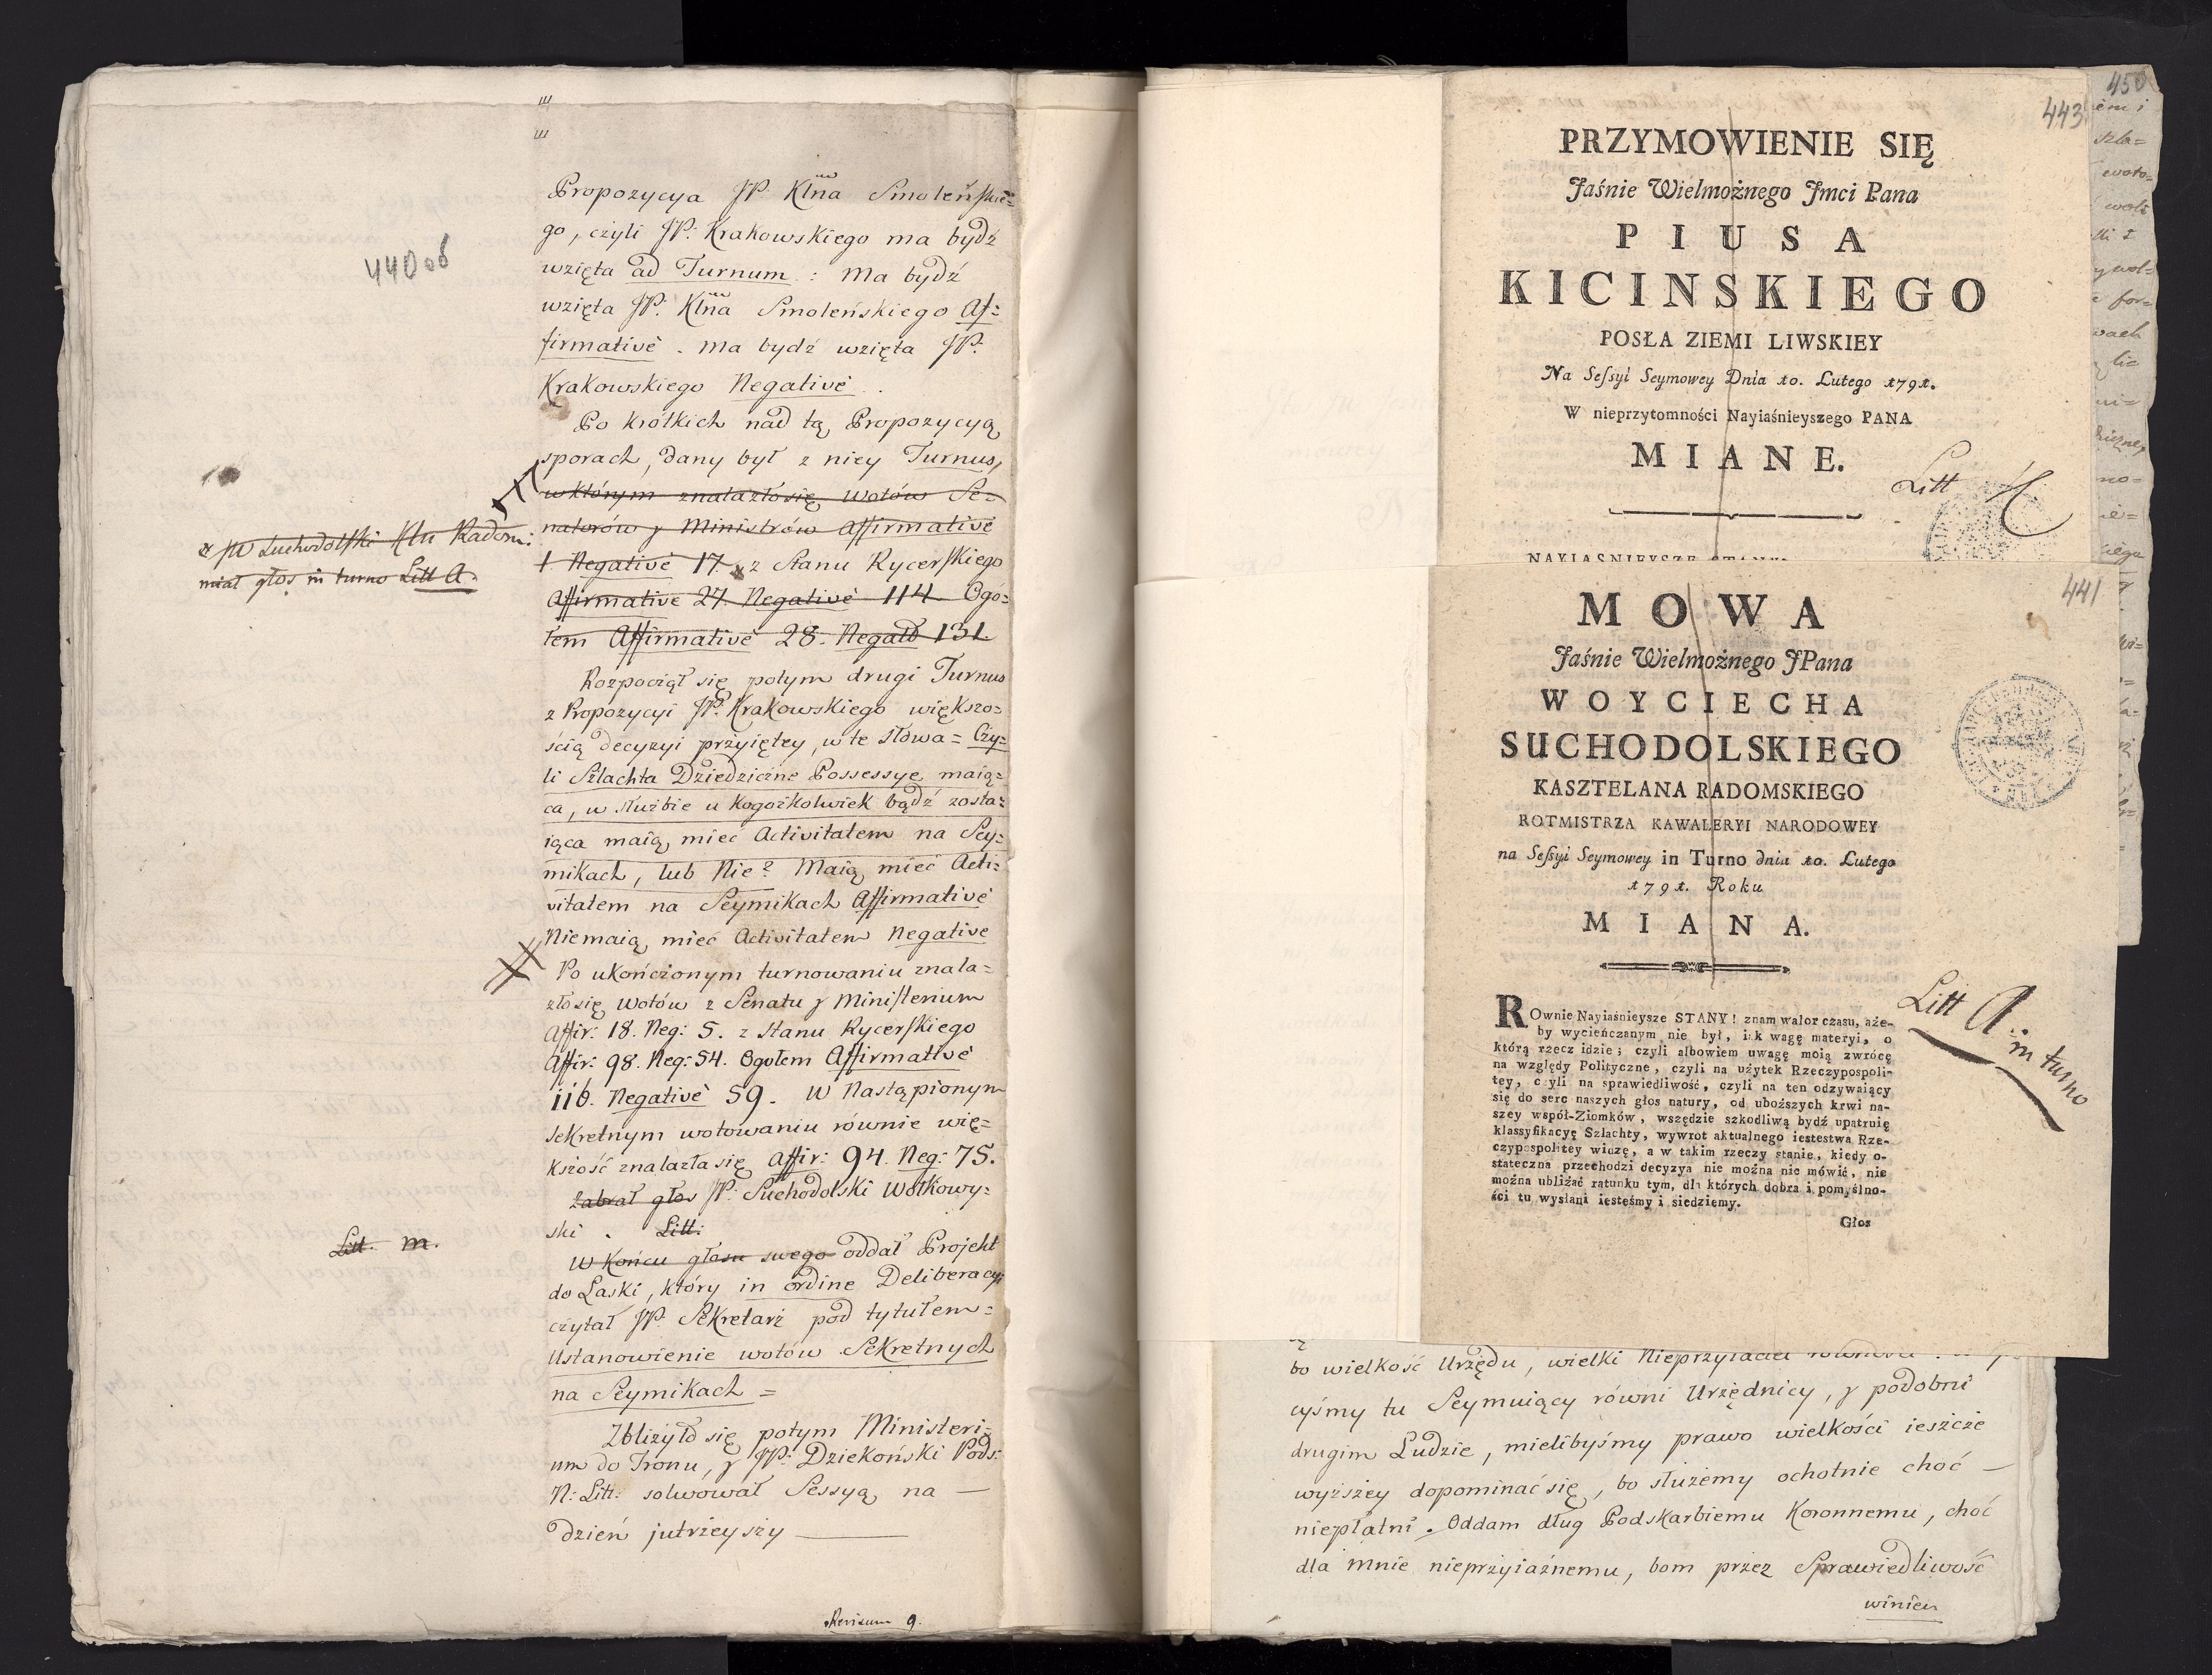 440 об
Propozycya JP. Klna Smoleńskie=
go, czyli JP: Krakowskiego ma bydź
wzięta ad Turnum : Ma bydź
wzięta JP. Klna Smoleńskiego Af=
firmativè . ma bydź wzięta JP.
Krakowskiego Negativè .
Po krótkich nad tą Propozycyą
sporach, dany był z niey Turnus,
w którym znalazło się wotów Se=
natorów y Ministrów Affirmativè
1 Negativè 17. z Stanu Rycerskiego
Affirmative 27. Negativè 114. Ogó=
łem Affirmativè 28. Negatð 131.
JW Suchodolski Kln Radom:
miał głos in turno Litt A.
Rozpoczął się potym drugi Turnus
z Propozycyi JP. Krakowskiego większo=
ścią decyzyi przyiętey, w te słowa = Czy=
li Szlachta Dziedziczne Possessye maią=
ca, w służbie u kogożkolwiek bądź zosta=
iąca maią mieć Activitatem na Sey=
mikach, lub Nie? Maią mieć Acti=
vitatem na Seymikach Affirmativè
Niemaią mieć Activitatem Negative
Po ukończonym turnowaniu znala=
zło się wotów z Senatu y Ministerium
Affir: 18. Neg: 5. z Stanu Rycerskiego
Affir: 98. Neg: 54. Ogołem Affirmativè
116. Negativè 59. W Nastąpionym
sekretnym wotowaniu równie wię=
kszość znalazła się Affir: 94. Neg: 75.
Zabrał głos JP: Suchodolski Wołkowy=
ski . Litt:
Litt. m.
W końcu głosu swego oddał Projekt
do Laski, który in ordine Deliberacyi
czytał JP. Sekretarz pod tytułem =
Ustanowienie wotów Sekretnych
na Seymikach =
Zbliżyło się potym Ministeri=
um do Tronu, y JP: Dziekoński Pods:
N: Litt: solwował Sessyą na —
dzień jutrzeyszy
Revisum 9.
450
443
PRZYMOWIENIE SIĘ
Jaśnie Wielmożnego Jmci Pana
PIUSA
KICINSKIEGO
POSŁA ZIEMI LIWSKIEY
Na Seſsyi Seymowey Dnia 10. Lutego 1791.
W nieprzytomności Nayiaśnieyszego PANA
MIANE.
Litt
NAYIASNIEYSZE STANY
441
MOWA
Jaśnie Wielmożnego JPana
WOYCIECHA
SUCHODOLSKIEGO
KASZTELANA RADOMSKIEGO
ROTMISTRZA KAWALERYI NARODOWEY
na Seſsyi Seymowey in Turno dnia 10. Lutego
1791. Roku
MIANA.
Litt A.
in turno
ROwnie Nayiaśnieysze STANY! znam walor czasu, aże-
by wycieńczanym nie był, iak wagę materyi, o
którą rzecz idzie; czyli albowiem uwagę moią zwrócę
na względy Polityczne, czyli na użytek Rzeczypospoli-
tey, czyli na sprawiedliwość, czyli na ten odzywaiący
się do serc naszych głos natury, od uboższych krwi na-
szey współ-Ziomków, wszędzie szkodliwą bydź upatruię
klassyfikacyę Szlachty, wywrot aktualnego iestestwa Rze-
czypospolitey widzę, a w takim rzeczy stanie, kiedy o-
stateczna przechodzi decyzya nie można nic mówić, nie
można ubliżać ratunku tym, dla których dobra i pomyślno-
ści tu wysłani iesteśmy i siedziemy.
Głos
bo wielkość Urzędu, wielki Nieprzyiaciel
cyśmy tu Seymuiący równi Urzędnicy, y podobni
drugim Ludzie, mielibyśmy prawo wielkości ieszcze
wyższey dopominać się, bo służemy ochotnie choć —
niepłatni. Oddam dług Podskarbiemu Koronnemu, choć
dla mnie nieprzyiaźnemu, bom przez Sprawiedliwość
winien